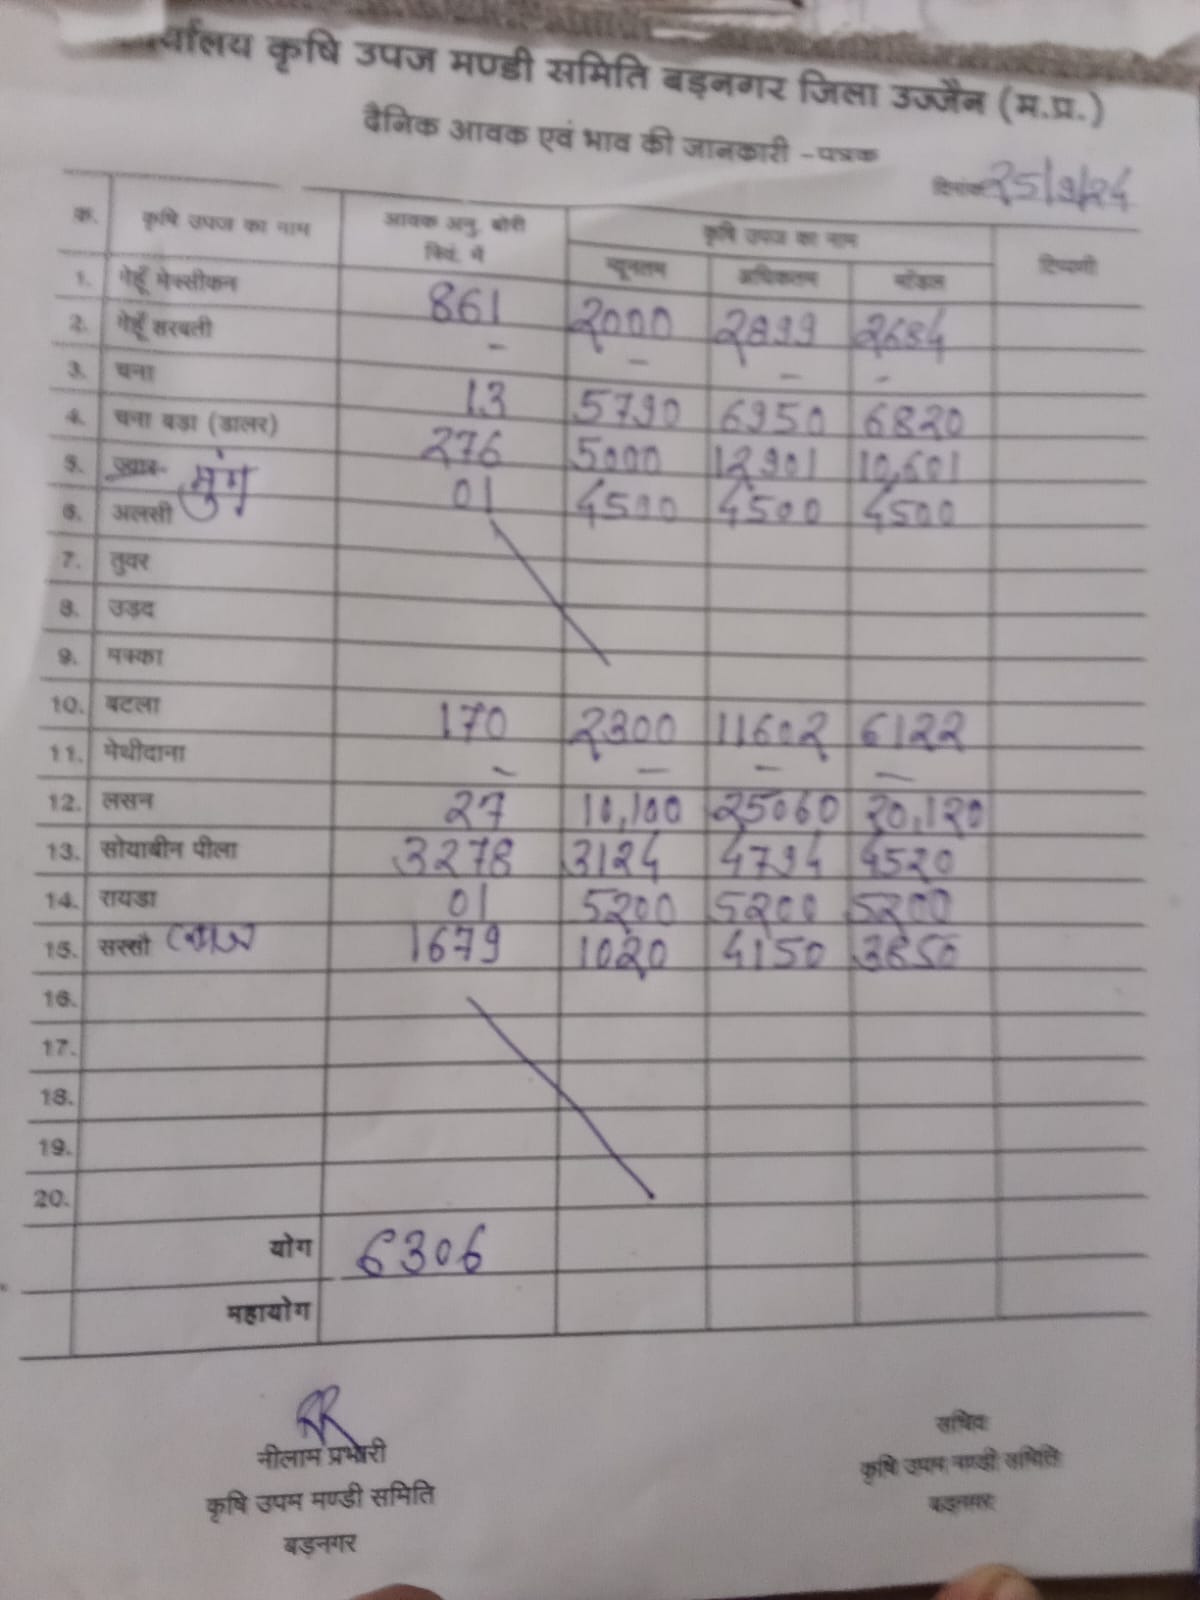 र्यालय कृषि उपज मण्डी समिति बड़नगर जिला उज्जैन (म.प्र.)
दैनिक आवक एवं भाव की जानकारी -पत्रक
दिनांक 25/9/24
क. कृषि उपज का नाम आवक अनु. बोरी क्विं. में कृषि उपज का नाम टिप्पणी
न्यूनतम अधिकतम मॉडल
1. गेहूँ मेक्सीकन 861 2000 2899 2684
2. गेहूँ सरबती - - - -
3. चना 13 5790 6950 6820
4. चना बड़ा (डालर) 276 5000 12901 10,601
5. मुंग 01 4500 4500 4500
6. अलसी
7. तुवर
8. उड़द
9. मक्का
10. बटला 170 2300 11602 6122
11. मेथीदाना - - - -
12. लसन 27 10,100 25060 20,120
13. सोयाबीन पीला 3278 3124 4794 4520
14. रायडा 01 5200 5200 5200
15. सरसौ 1679 1020 4150 3850
16.
17.
18.
19.
20.
योग 6306
महायोग
नीलाम प्रभारी
कृषि उपम मण्डी समिति
बड़नगर
सचिव
कृषि उपम मण्डी समिति
बड़नगर